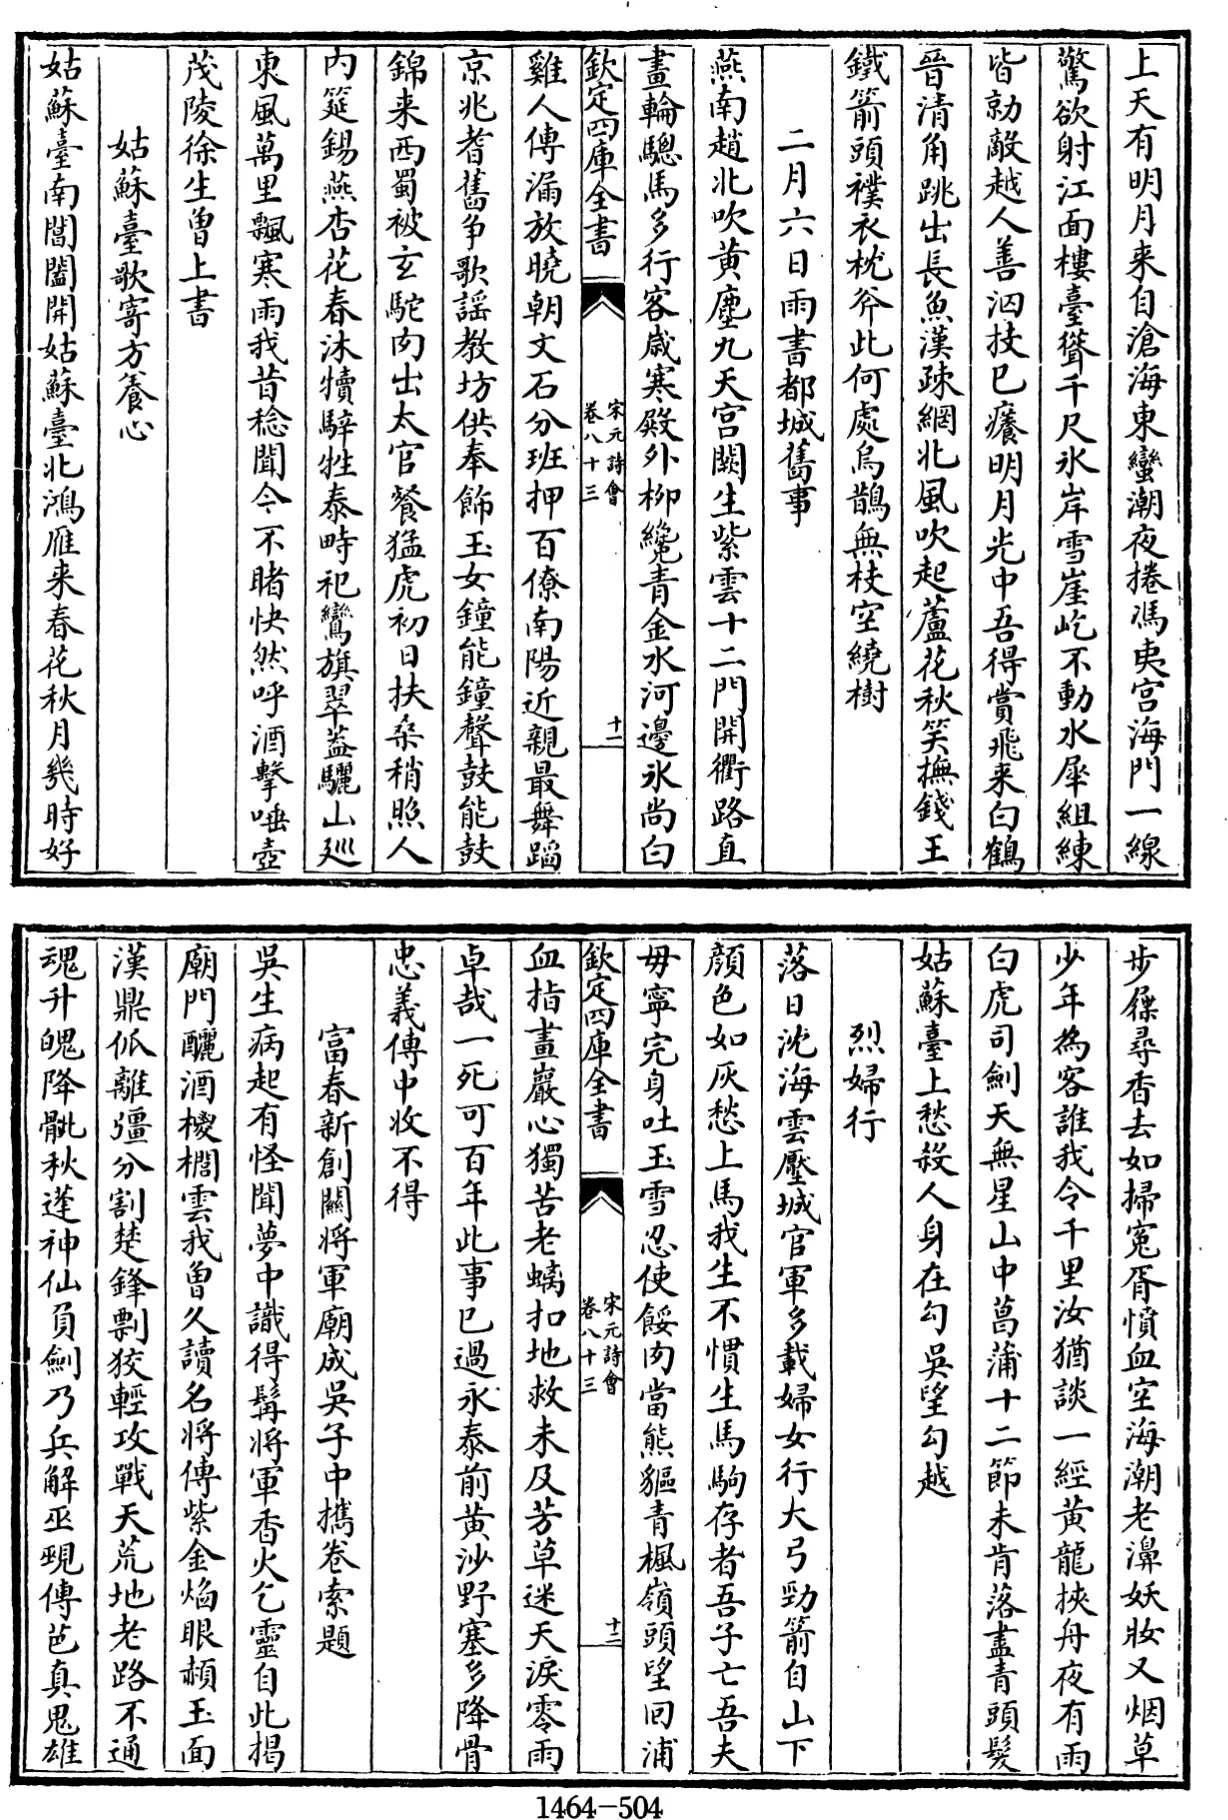 上天有明月来自滄海東蠻潮夜捲馮夷宫海門一線
驚欲射江面樓臺聳千尺氷岸雪崖屹不動水犀組練
皆勍敵越人善泅技已癢明月光中吾得賞飛来白鶴
晉清角跳出長魚漢疎網北風吹起蘆花秋笑撫錢王
鐵箭頭襆衣枕斧此何處烏鵲無枝空繞樹
二月六日雨書都城舊事
燕南趙北吹黄塵九天宫闕生紫雲十二門開衢路直
畫輪驄馬多行客歲寒殿外柳纔青金水河邊氷尚白
欽定四庫全書
宋元詩會
卷八十三
十一
雞人傳漏放曉朝文石分班押百僚南陽近親最舞蹈
京兆耆舊争歌謡教坊供奉飾玉女鐘能鐘聲鼓能鼓
錦来西蜀被玄駝肉出太官餐猛虎初日扶桑稍照人
内筵錫燕杏花春沐犢騂牲泰畤祀鸞旗翠葢驪山廵
東風萬里飄寒雨我昔稔聞今不睹快然呼酒擊唾壺
茂陵徐生曽上書
姑蘇臺歌寄方養心
姑蘇臺南閶闔開姑蘇臺北鴻雁来春花秋月幾時好
步屧尋香去如掃寃胥憤血空海潮老濞妖妝又烟草
少年為客誰我令千里汝猶談一經黄龍挾舟夜有雨
白虎司劍天無星山中菖蒲十二節未肯落盡青頭髮
姑蘇臺上愁殺人身在勾吳望勾越
烈婦行
落日沈海雲壓城官軍多載婦女行大弓勁箭自山下
顔色如灰愁上馬我生不慣生馬駒存者吾子亡吾夫
毋寧完身吐玉雪忍使餒肉當熊貙青楓嶺頭望回浦
欽定四庫全書
宋元詩會
卷八十三
十二
血指畫巖心獨苦老螭扣地救未及芳草迷天淚零雨
卓哉一死可百年此事已過永泰前黄沙野塞多降骨
忠義傳中收不得
富春新創關將軍廟成吳子中攜卷索題
吳生病起有怪聞夢中識得髯將軍香火乞靈自此掲
廟門釃酒㮨櫚雲我曽久讀名將傳紫金焰眼頳玉面
漢鼎仳離彊分割楚鋒剽狡輕攻戰天荒地老路不通
魂升魄降骴秋蓬神仙負劍乃兵解巫覡傳芭真鬼雄
1464-504